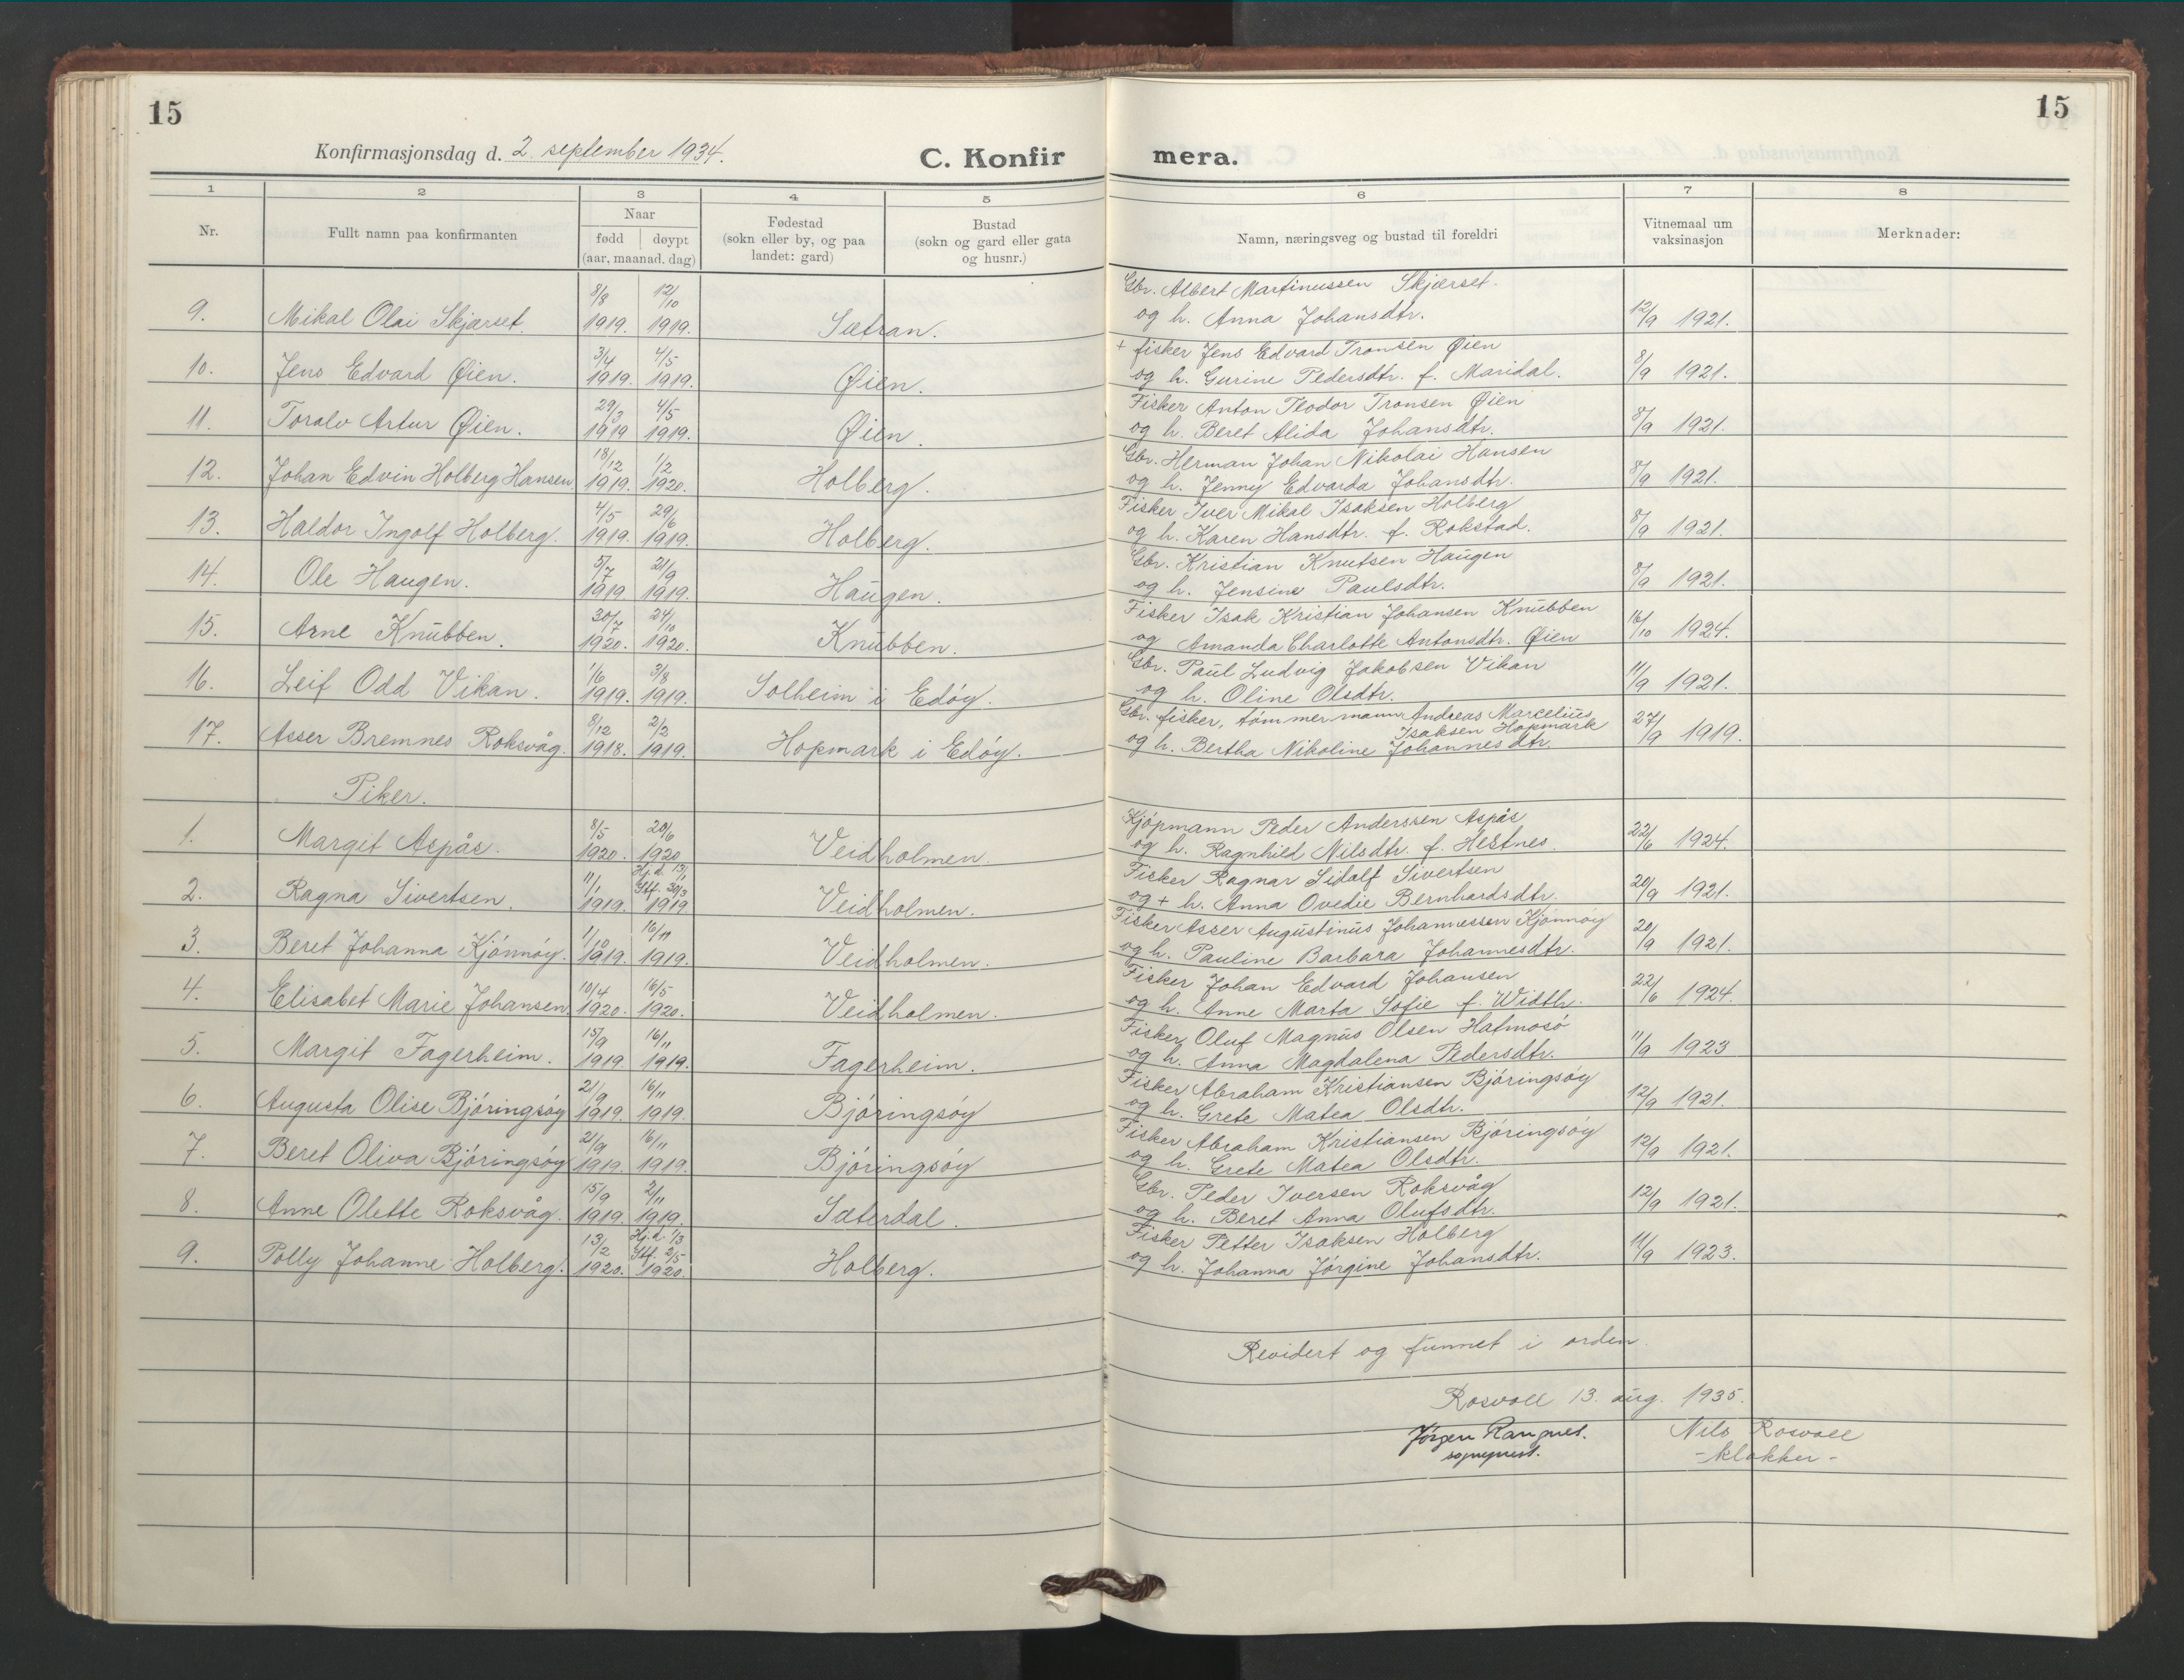 15
15
Konfirmasjonsdag d. 2. september 1934.
C. Konfir mera.
1 2 3 4 5 6 7 8
Nr.
Fullt namn paa konfirmanten
Naar
fødd døypt
(aar, maanad, dag)
Fødestad
(sokn eller by, og paa
landet: gard)
Bustad
(sokn og gard eller gata
og husnr.)
Namn, næringsveg og bustad til foreldri
Vitnemaal um
vaksinasjon
Merknader:
8/8 12/10 Gbr. Albert Martinussen Skjærset.
9. Mikal Olai Skjærset. 1919. 1919. Sætran. og h. Anna Johansdtr. 12/9 1921.
3/4 4/5 + fisker Jens Edvard Tronsen Øien
10. Jens Edvard Øien. 1919. 1919. Øien. og h. Gurine Pedersdtr. f. Maridal. 8/9 1921.
29/3 4/5 Fisker Anton Teodor Tronsen Øien
11. Toralv Artur Øien. 1919 1919. Øien. og h. Beret Alida Johansdtr. 8/9 1921.
18/12 1/2 Gbr. Herman Johan Nikolai Hansen
12. Johan Edvin Holberg Hansen. 1919. 1920. Holberg. og h. Jenny Edvarda Johansdtr. 8/9 1921.
4/5 29/6 Fisker Iver Mikal Isaksen Holberg
13. Haldor Ingolf Holberg. 1919. 1919. Holberg. og h. Karen Hansdtr. f. Rokstad. 8/9 1921.
5/7 21/9 Gbr. Kristian Knutsen Haugen
14. Ole Haugen. 1919 1919. Haugen. og h. Jensine Paulsdtr. 8/9 1921.
30/7 24/10 Fisker Isak Kristian Johansen Knubben
15. Arne Knubben. 1920. 1920. Knubben. og Amanda Charlotte Antonsdtr. Øien 16/10 1924.
1/6 3/8 Gbr. Paul Ludvig Jakobsen Vikan
16. Leif Odd Vikan. 1919. 1919. Solheim i Edøy. og h. Oline Olsdtr. 11/9 1921.
8/12 2/2 Gbr. fisker, tømmermann Andreas Marcelius
Isaksen Hopmark
17. Asser Bremnes Roksvåg. 1918. 1919. Hopmark i Edøy. og h. Bertha Nikoline Johannesdtr. 27/9 1919.
Piker.
8/5 20/6 Kjøpmann Peder Anderssen Aspås
1. Margit Aspås. 1920. 1920 Veidholmen. og h. Ragnhild Nilsdtr. f. Hestnes. 22/6 1924.
11/1 Hj.d. 13/1 Stf. 30/3 Fisker Ragnar Sidolf Sivertsen
2. Ragna Sivertsen. 1919. 1919 Veidholmen. og + h. Anna Ovedie Bernhardsdtr. 20/9 1921.
1/10 16/11 Fisker Asser Augustinus Johannessen Kjønnøy
3. Beret Johanna Kjønnøy. 1919. 1919. Veidholmen. og h. Pauline Barbara Johannesdtr. 20/9 1921.
10/4 16/5 Fisker Johan Edvard Johansen
4. Elisabet Marie Johansen. 1920. 1920. Veidholmen. og h. Anne Marta Sofie f. Width. 22/6 1924.
15/9 16/11 Fisker Oluf Magnus Olsen Hatmosø
5. Margit Fagerheim. 1919. 1919. Fagerheim. og h. Anna Magdalena Pedersdtr. 11/9 1923
21/9 16/11 Fisker Abraham Kristiansen Bjøringsøy
6. Augusta Olise Bjøringsøy 1919. 1919. Bjøringsøy og h. Grete Matea Olsdtr. 12/9 1921.
21/9 16/11 Fisker Abraham Kristiansen Bjøringsøy
7. Beret Oliva Bjøringsøy 1919. 1919. Bjøringsøy og h. Grete Matea Olsdtr. 12/9 1921.
15/9 2/11 Gbr. Peder Iversen Roksvåg
8. Anne Olette Roksvåg. 1919. 1919. Sæterdal. og h. Beret Anna Olufsdtr. 12/9 1921.
13/2 Hj.d. 1/3 Stf. 2/5 Fisker Petter Isaksen Holberg
9. Polly Johanne Holberg. 1920. 1920. Holberg. og h. Johanna Jørgine Johansdtr. 11/9 1923.
Revidert og funnet i orden.
Rosvoll 13. aug. 1935.
Jörgen sogneprest.
Nils Rosvoll
- klokker -